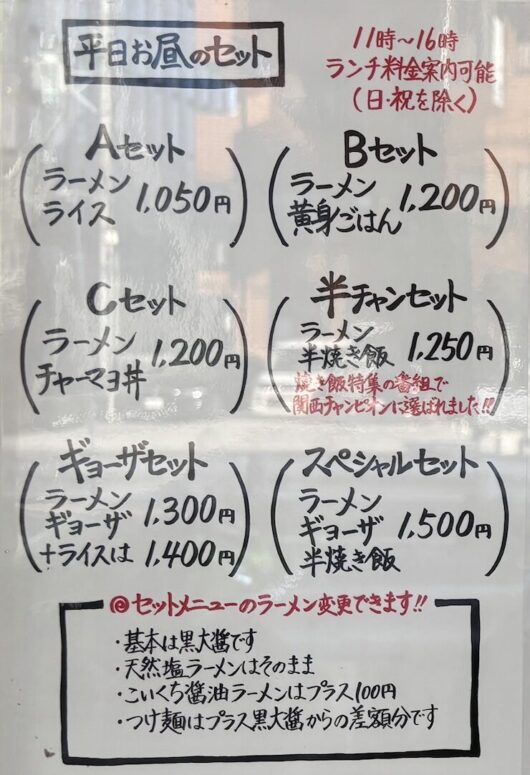 平日お昼のセット
11時〜16時
ランチ料金案内可能
(日・祝を除く)
Aセット
ラーメン
ライス
1,050円
Bセット
ラーメン
黄身ごはん
1,200円
Cセット
ラーメン
チャーマヨ丼
1,200円
半チャンセット
ラーメン
半焼き飯
1,250円
焼き飯特集の番組で
関西チャンピオンに選ばれました!!
ギョーザセット
ラーメン
ギョーザ 1,300円
+ライスは 1,400円
スペシャルセット
ラーメン
ギョーザ
半焼き飯
1,500円
@セットメニューのラーメン変更できます!!
・基本は黒大醤です
・天然塩ラーメンはそのまま
・こいくち醤油ラーメンはプラス100円
・つけ麺はプラス黒大醤からの差額分です